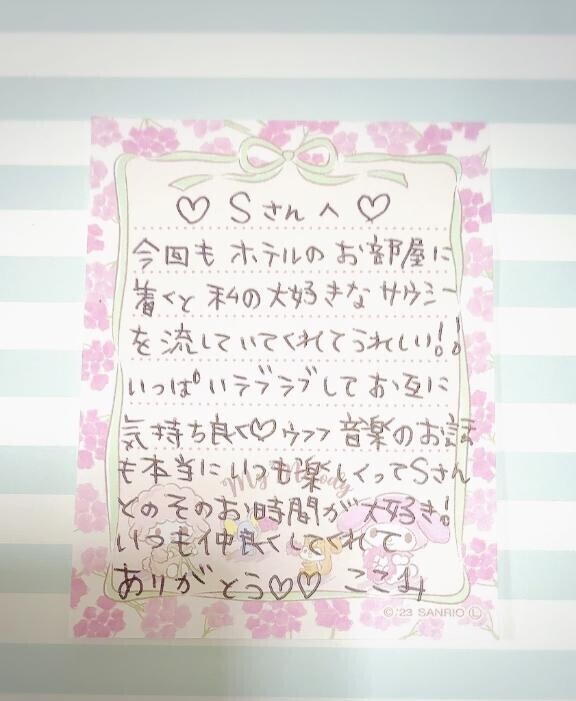 ♡ Sさんへ ♡
今回も ホテルの お部屋に
着くと 私の大好きな サウシー
を流していてくれてうれしい!!
いっぱいラブラブしてお互に
気持ち良く♡ウフフ 音楽のお話
も本当にいつも楽しくってSさん
とのそのお時間が大好き!
いつも仲良くしてくれて
ありがとう♡♡ ここみ
My Melody
©'23 SANRIO Ⓛ